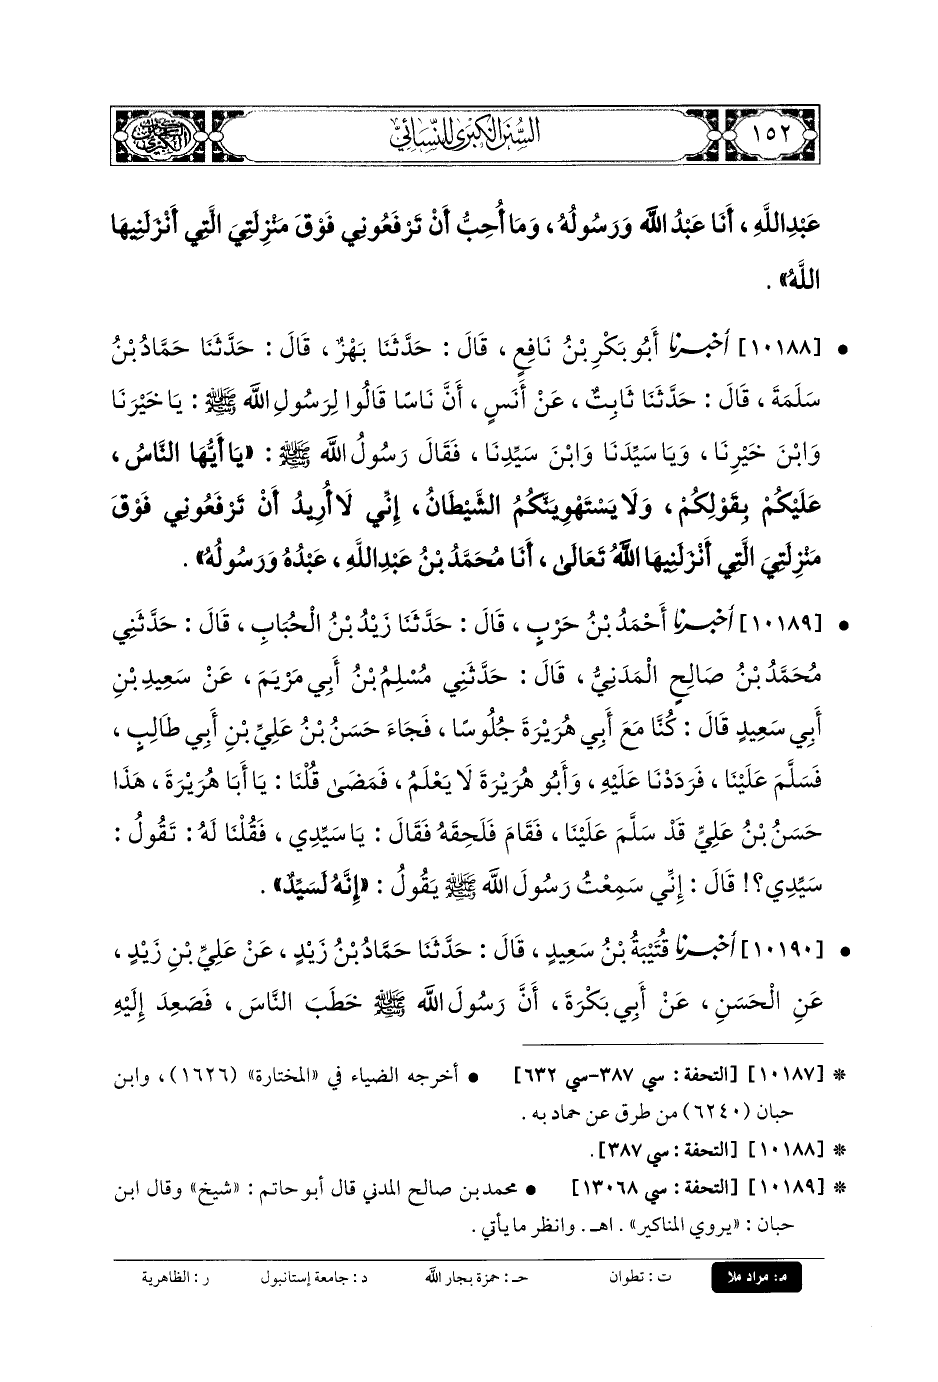 ١٥٢
السنن الكبرى للنسائي
عَبْدِاللَّهِ ، أَنَا عَبْدُ اللَّه وَرَسُولُهُ ، وَمَا أُحِبُّ أَنْ تَرْفَعُونِي فَوْقَ مَنْزِلَتِيَ الَّتِي أَنْزَلَنِيهَا
اللَّهُ» .
• [١٠١٨٨] أخبرنا أَبُو بَكْرِ بْنُ نَافِعٍ ، قَالَ : حَدَّثَنَا بَهْزٌ ، قَالَ : حَدَّثَنَا حَمَّادُ بْنُ
سَلَمَةَ ، قَالَ : حَدَّثَنَا ثَابِتٌ ، عَنْ أَنَسٍ ، أَنَّ نَاسًا قَالُوا لِرَسُولِ اللَّه ﷺ : يَا خَيْرَنَا
وَابْنَ خَيْرِنَا ، وَيَا سَيِّدَنَا وَابْنَ سَيِّدِنَا ، فَقَالَ رَسُولُ اللَّه ﷺ : «يَا أَيُّهَا النَّاسُ ،
عَلَيْكُمْ بِقَوْلِكُمْ ، وَلَا يَسْتَهْوِيَنَّكُمُ الشَّيْطَانُ ، إِنِّي لَا أُرِيدُ أَنْ تَرْفَعُونِي فَوْقَ
مَنْزِلَتِيَ الَّتِي أَنْزَلَنِيهَا اللَّهُ تَعَالَى ، أَنَا مُحَمَّدُ بْنُ عَبْدِاللَّهِ ، عَبْدُهُ وَرَسُولُهُ» .
• [١٠١٨٩] أخبرنا أَحْمَدُ بْنُ حَرْبٍ ، قَالَ : حَدَّثَنَا زَيْدُ بْنُ الْحُبَابِ ، قَالَ : حَدَّثَنِي
مُحَمَّدُ بْنُ صَالِحٍ الْمَدَنِيُّ ، قَالَ : حَدَّثَنِي مُسْلِمُ بْنُ أَبِي مَرْيَمَ ، عَنْ سَعِيدِ بْنِ
أَبِي سَعِيدٍ قَالَ : كُنَّا مَعَ أَبِي هُرَيْرَةَ جُلُوسًا ، فَجَاءَ حَسَنُ بْنُ عَلِيِّ بْنِ أَبِي طَالِبٍ ،
فَسَلَّمَ عَلَيْنَا ، فَرَدَدْنَا عَلَيْهِ ، وَأَبُو هُرَيْرَةَ لَا يَعْلَمُ ، فَمَضَى قُلْنَا : يَا أَبَا هُرَيْرَةَ ، هَذَا
حَسَنُ بْنُ عَلِيٍّ قَدْ سَلَّمَ عَلَيْنَا ، فَقَامَ فَلَحِقَهُ فَقَالَ : يَا سَيِّدِي ، فَقُلْنَا لَهُ : تَقُولُ :
سَيِّدِي؟! قَالَ : إِنِّي سَمِعْتُ رَسُولَ اللَّه ﷺ يَقُولُ : «إِنَّهُ لَسَيِّدٌ» .
• [١٠١٩٠] أخبرنا قُتَيْبَةُ بْنُ سَعِيدٍ ، قَالَ : حَدَّثَنَا حَمَّادُ بْنُ زَيْدٍ ، عَنْ عَلِيِّ بْنِ زَيْدٍ ،
عَنِ الْحَسَنِ ، عَنْ أَبِي بَكْرَةَ ، أَنَّ رَسُولَ اللَّه ﷺ خَطَبَ النَّاسَ ، فَصَعِدَ إِلَيْهِ
* [١٠١٨٧] [التحفة : سي ٣٨٧-سي ٦٣٢] • أخرجه الضياء في «المختارة» (١٦٢٦) ، وابن
حبان (٦٢٤٠) من طرق عن حماد به .
* [١٠١٨٨] [التحفة : سي ٣٨٧] .
* [١٠١٨٩] [التحفة : سي ١٣٠٦٨] • محمد بن صالح المدني قال أبو حاتم : «شيخ» وقال ابن
حبان : «يروي المناكير» . اهـ . وانظر ما يأتي .
م: مراد ملا ت : تطوان حـ : حمزة بجار اللَّه د : جامعة إستانبول ر : الظاهرية